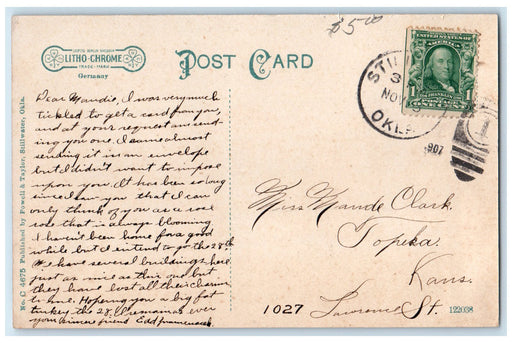 $5.00
LEIPZIG BERLIN DRESDEN
LITHO-CHROME
TRADE-MARK
Germany
POST CARD
STILL
3
NOV
OKLA
907
UNITED STATES OF
AMERICA
FRANKLIN
POSTAGE
ONE CENT
1 1
1
Dear Maudie, I was very much
tickled to get a card from you,
and at your request am send-
ing you one. I came almost
sending it in an envelope
but I didn't want to impose
upon you. It has been so long
since I saw you that I can
only think of you as a rose
rose that is always blooming
I haven't been home for a good
while but I intend to go the 28th
We have several buildings here
just as nice as this one but
they have lost all their charm
to me. Hoping you a big fat
turkey the 28, I remain as ever
your sincere friend Edd
Miss Maude Clark.
Topeka.
Kans.
1027 Lawrence St.
122038
No. C 4675 Published by Powell & Taylor, Stillwater, Okla.